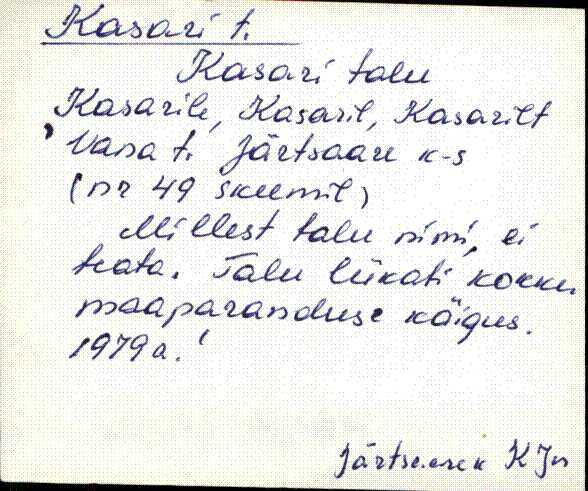 Kasari t.
Kasari talu
Kasarile, Kasaril, Kasarilt
'Vana t. Järtsaare k-s
(nr 49 skeemil)
Millest talu nimi, ei
teata. Talu lükati kokku
maaparanduse käigus.
1979 a.'
KJn